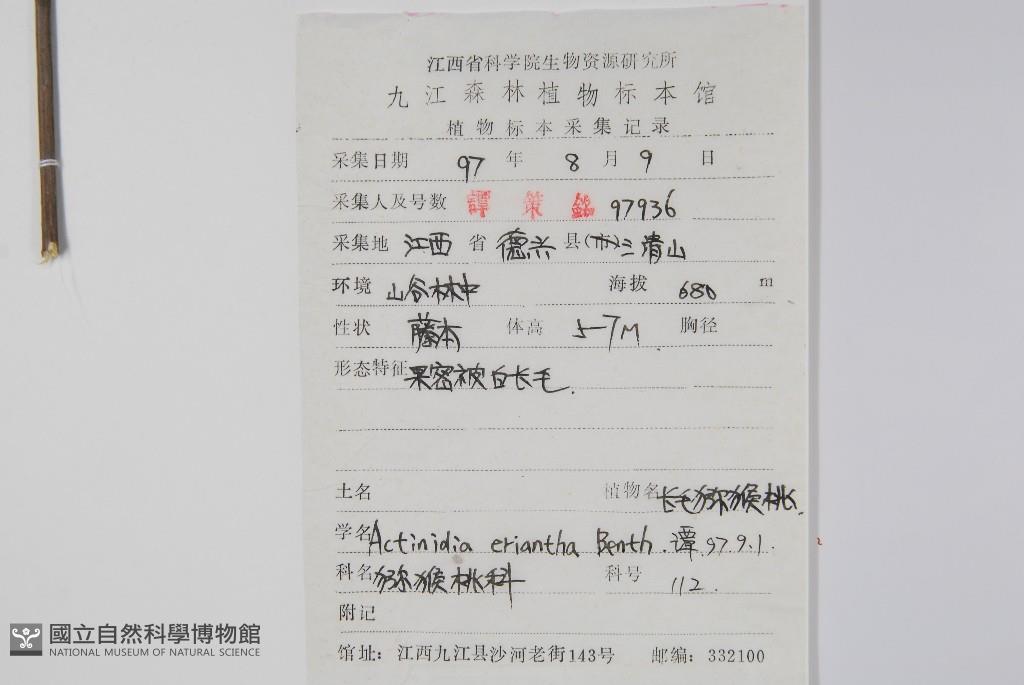 江西省科学院生物资源研究所
九江森林植物标本馆
植物标本采集记录
采集日期 97 年 8 月 9 日
采集人及号数 譚策銘 97936
采集地 江西 省 德兴 县(市)三清山
环境 山谷林中 海拔 680 m
性状 藤本 体高 5-7M 胸径
形态特征 果密被白长毛.
土名 植物名 长毛猕猴桃.
学名 Actinidia eriantha Benth. 譚 97.9.1.
科名 猕猴桃科 科号 112.
附记
馆址: 江西九江县沙河老街143号 邮编: 332100
國立自然科學博物館
NATIONAL MUSEUM OF NATURAL SCIENCE